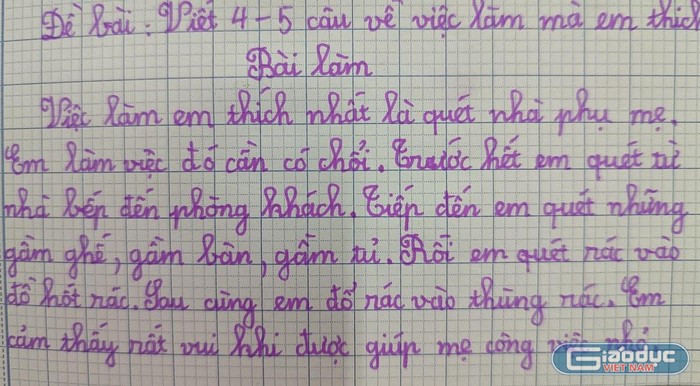 Đề bài: Viết 4-5 câu về việc làm mà em thích
Bài làm
Việc làm em thích nhất là quét nhà phụ mẹ.
Em làm việc đó cần có chổi. Trước hết em quét từ
nhà bếp đến phòng khách. Tiếp đến em quét những
gầm ghế, gầm bàn, gầm tủ. Rồi em quét rác vào
đồ hốt rác. Sau cùng em đổ rác vào thùng rác. Em
cảm thấy rất vui khi được giúp mẹ công việc nhà
Giáo dục
VIỆT NAM